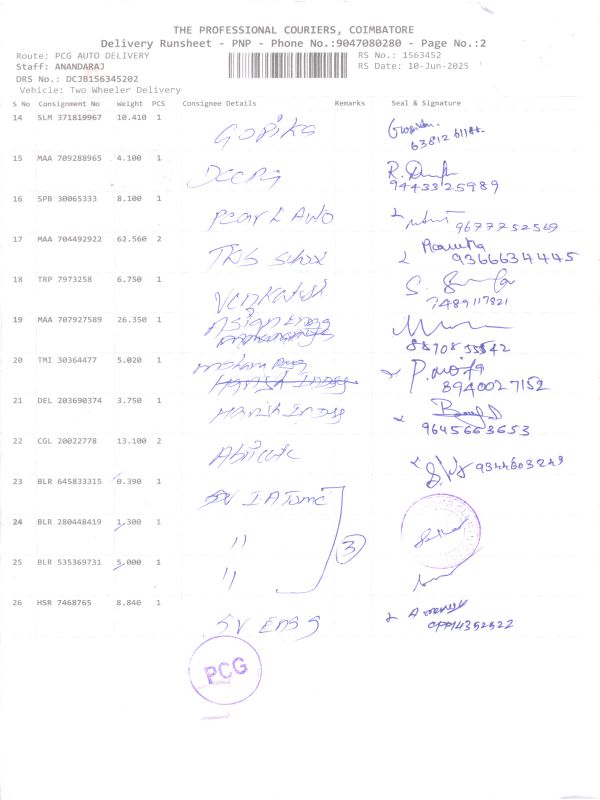 THE PROFESSIONAL COURIERS, COIMBATORE
Delivery Runsheet - PNP - Phone No.:9047080280 - Page No.:2
Route: PCG AUTO DELIVERY RS No.: 1563452
Staff: ANANDARAJ RS Date: 10-Jun-2025
DRS No.: DCJB156345202
Vehicle: Two Wheeler Delivery
S No Consignment No Weight PCS Consignee Details Remarks Seal & Signature
14 SLM 371819967 10.410 1
Gopika
15 MAA 709288965 4.100 1
9443325989
16 SPB 30065333 8.100 1
Pearl Auto
9677752569
17 MAA 704492922 62.560 2
9366634445
18 TRP 7973258 6.750 1
Venkatesh
7489117821
19 MAA 707927589 26.350 1
20 TMI 30364477 5.020 1
8940027152
21 DEL 203690374 3.750 1
Harish Indsg
9645663653
22 CGL 20022778 13.100 2
9344603243
23 BLR 645833315 0.390 1
SV
24 BLR 280448419 1.300 1
"
3
25 BLR 535369731 5.000 1
"
26 HSR 7468765 8.840 1
SV Engg
PCG